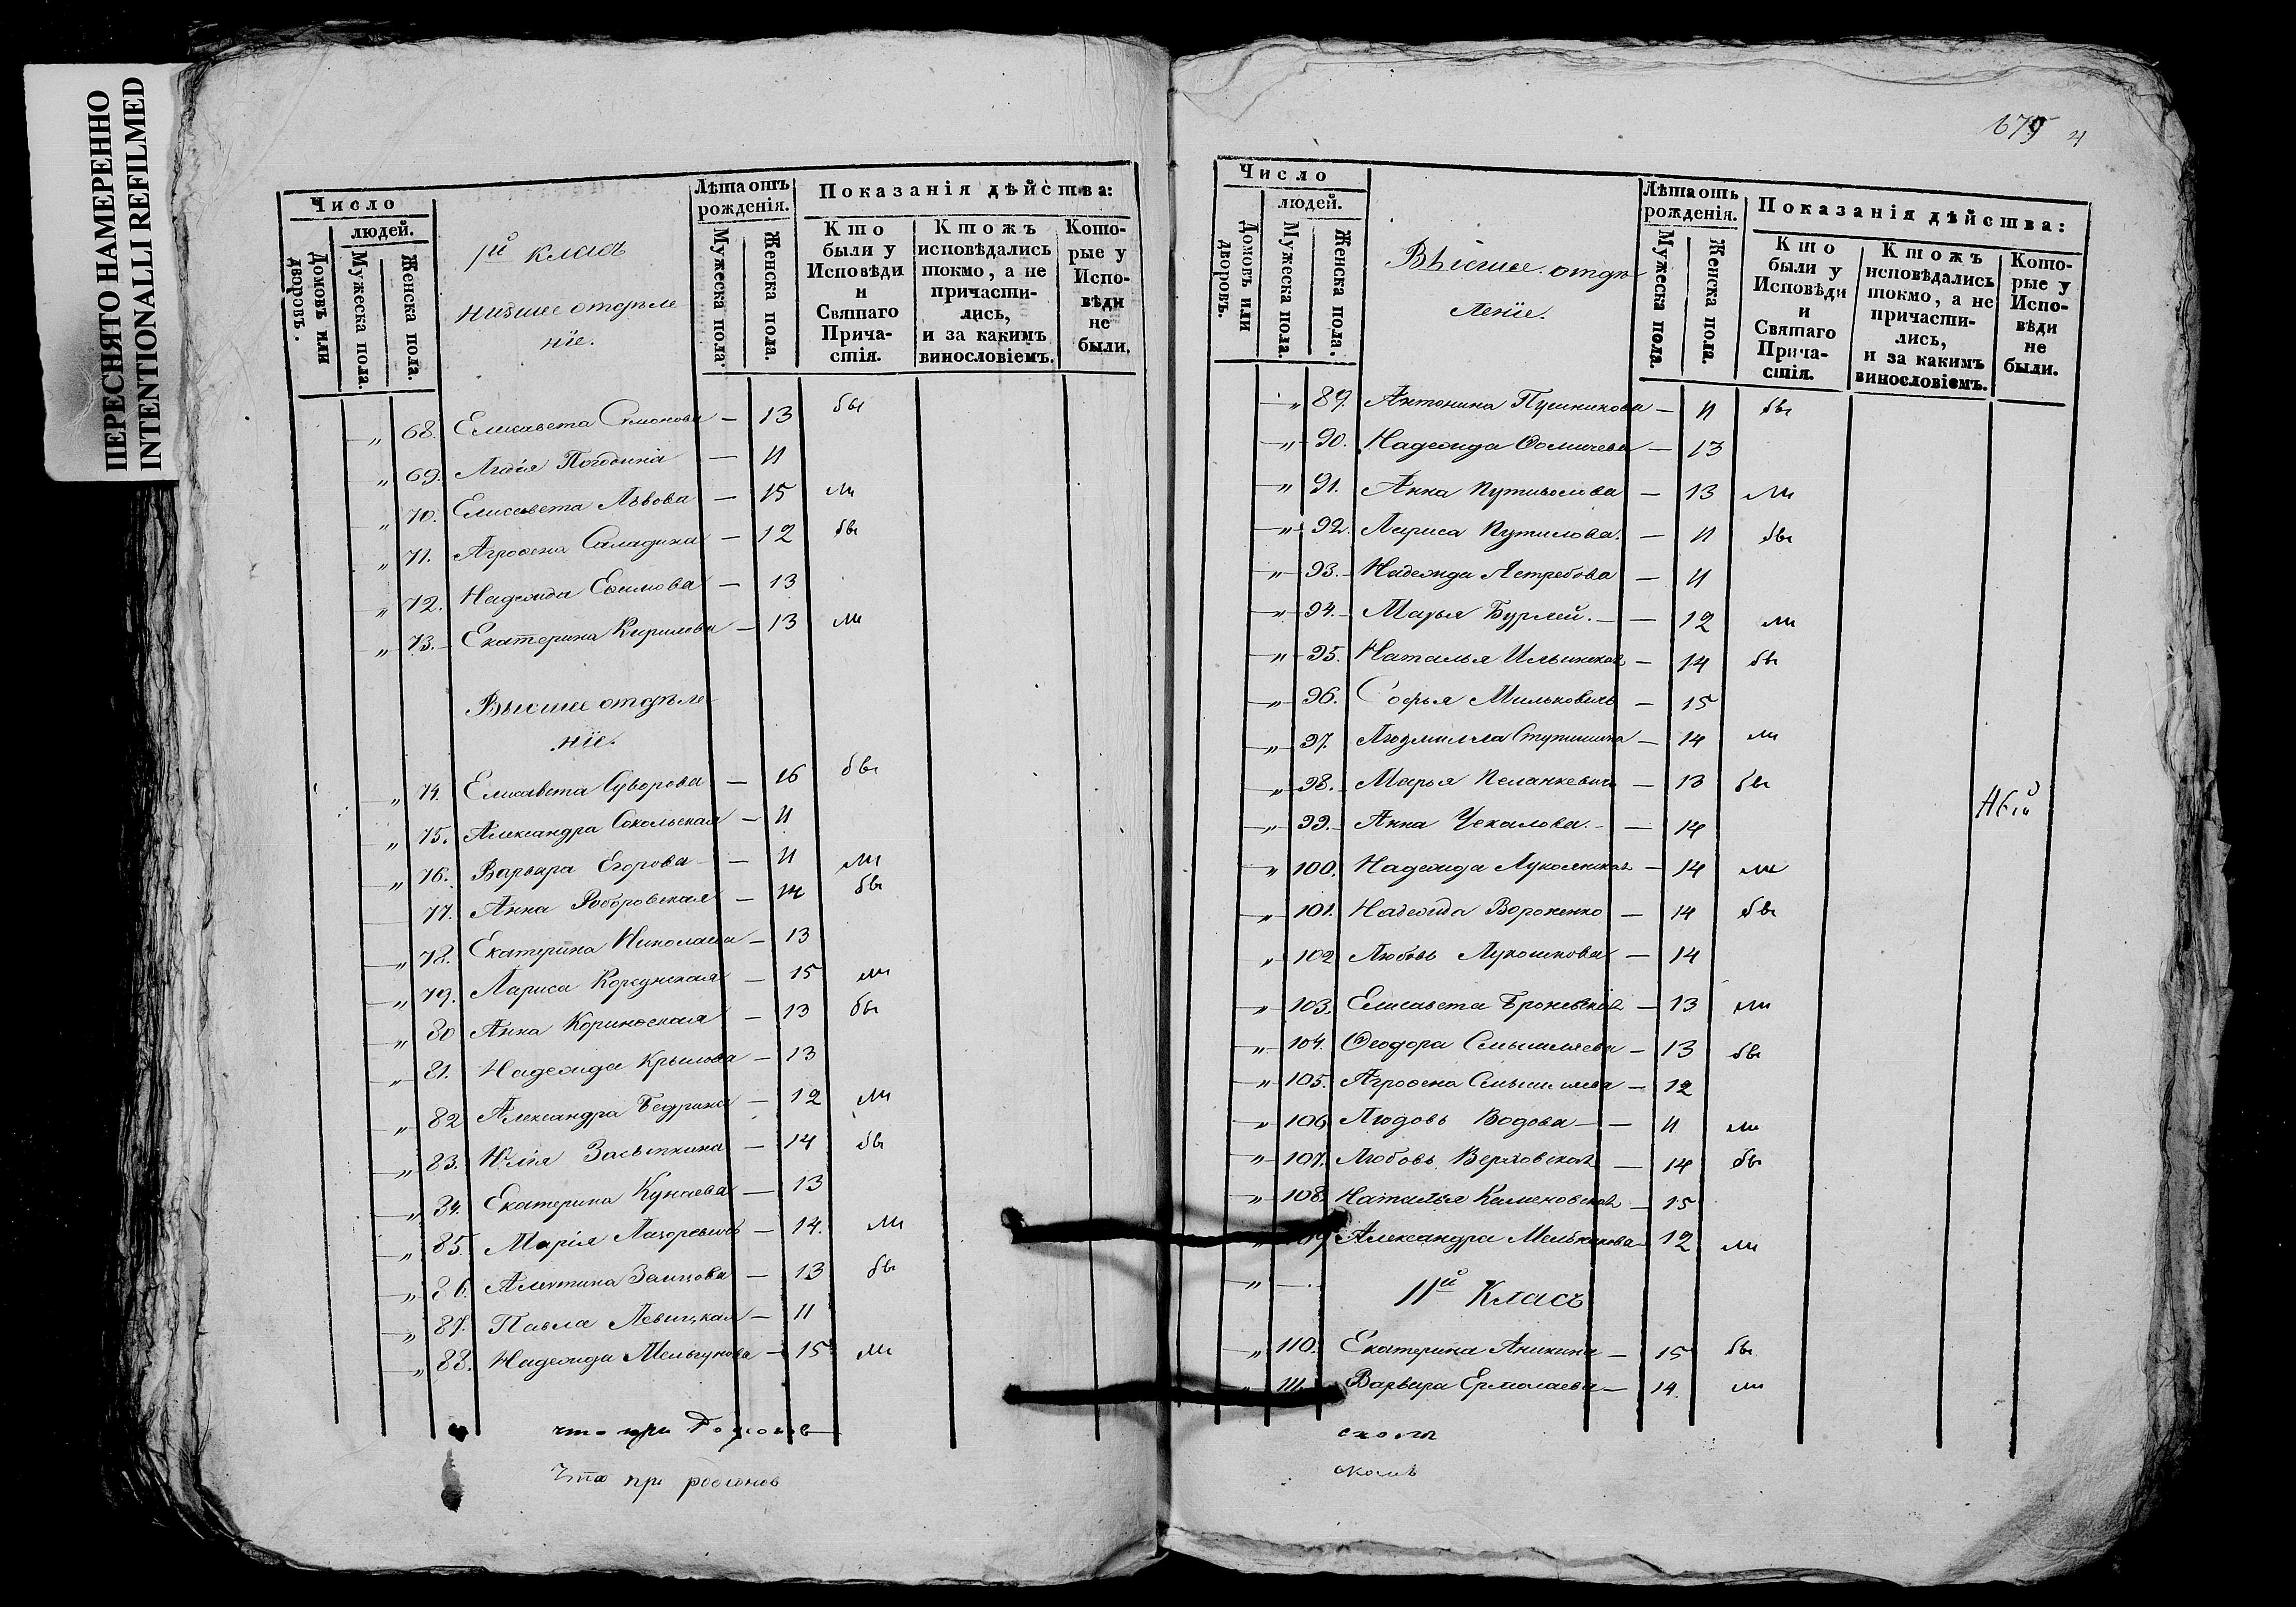 ПЕРЕСНЯТО НАМЕРЕННО
INTENTIONALLI REFILMED
Число
людей.
Домовъ или дворовъ.
Мужеска пола.
Женска пола.
1й класъ
низшее отдѣле
ніе.
Лѣта отъ рожденія.
Мужеска пола.
Женска пола.
Показанія дѣйства:
Кто были у Исповѣди и Святаго Прича-стія.
Ктожъ исповѣдались токмо, а не причасти-лись, и за какимъ винословіемъ.
Кото-рые у Испо-вѣди не были.
„ 68. Елисавета Симонова — 13 бы
„ 69. Лидія Погодина — 11
„ 70. Елисавета Львова — 15 ли
„ 71. Агроѳена Саладина — 12 бы
„ 72. Надежда Еѳимова — 13
„ 73. Екатерина Кирилова — 13 ли
Высшее отдѣле-
ніе.
„ 74. Елисавета Суворова — 16 бы
„ 75. Александра Сокольская — 11
„ 76. Варвара Егорова — 11 ли
77. Анна Робровская — 14 бы
„ 78. Екатерина Николаева — 13
„ 79. Лариса Корсунская — 15 ли
„ 80 Анна Коринѳская — 13 бы
„ 81. Надежда Крылова — 13
„ 82 Александра Бедрина — 12 ли
„ 83. Юлія Засыпкина — 14 бы
„ 84. Екатерина Кунаева — 13
„ 85. Марія Лазоревичь — 14. ли
„ 86. Алевтина Зайцова — 13 бы
„ 87. Павла Левицкая — 11
„ 88. Надежда Мельгунова — 15 ли
что при
Что при
679 4
Число
людей.
Домовъ или дворовъ.
Мужеска пола.
Женска пола.
Высшее отдѣ-
леніе.
Лѣта отъ рожденія.
Мужеска пола.
Женска пола.
Показанія дѣйства:
Кто были у Исповѣди и Святаго Прича-стія.
Ктожъ исповѣдались токмо, а не причасти-лись, и за какимъ винословіемъ.
Кото-рые у Испо-вѣди не были.
„ 89. Антонина Пушникова — 11 бы
„ 90. Надежда Ѳомичева — 13
„ 91. Анна — 13 ли
„ 92. Лариса Путилова. — 11 бы
„ 93. Надежда Ястребова — 11
„ 94. Марья Бурмей. — 12 ли
„ 95. Наталья Ильинская — 14 бы
„ 96. Софья Милькович — 15
„ 97. Людмилла Ступишина — 14 ли
„ 98. Марья — 13 бы
„ 99. Анна Чекалова. — 14
„ 100. Надежда Лукоянская — 14 ли
„ 101. Надежда Вороненко — 14 бы
„ 102 Любовь Лукошкова — 14
„ 103. Елисавета Броневская — 13 ли
„ 104. Ѳеодора Смышляева — 13 бы
„ 105. Агроѳена Смышляева — 12
„ 106 Людовь Водова — 11 ли
„ 107. Любовь Верховская — 14 бы
„ 108. Наталья Каменовская — 15
„ Александра Мельникова 12 ли
„ — 11й Класъ
„ 110. Екатерина Аникина — 15 бы
„ 111 Варвара Ермолаева — 14. ли